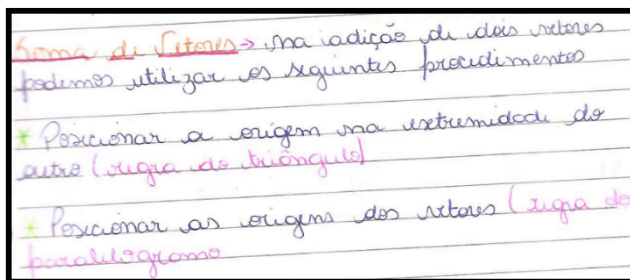 Soma de Vetores → na adição de dois vetores
podemos utilizar os seguintes procedimentos
* Posicionar a origem na extremidade do
outro (regra do triângulo)
* Posicionar as origens dos vetores (regra do
paralelogramo